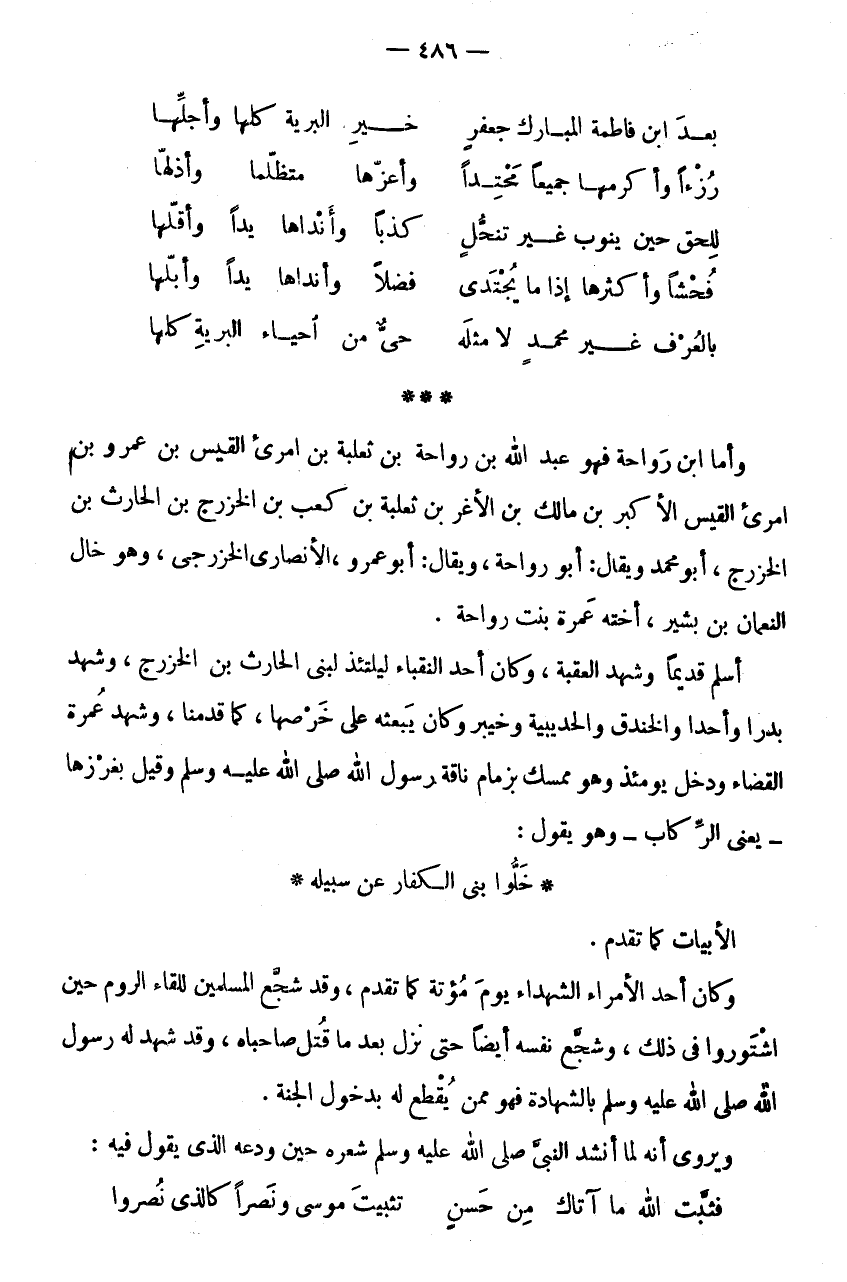 — ٤٨٦ —
بعـدَ ابن فاطمة المبـارك جعفرٍ خـــيرِ البرية كلها وأجلِّهـا
رُزْءاً وأكرمهـا جميعاً مَحْتِـداً وأعزّها متظلّما وأذلهّا
لِلحق حين ينوب غـــير تنحُّلٍ كذبًا وأَنْداها يداً وأقلّها
فُحْشاً وأكثرها إذا ما يُجْتَدى فضلاً وأنداها يداً وأبلّها
بالعُرْف غـــير محمـدٍ لا مثلَه حىٌّ من أحيـاء البريةِ كلها
***
وأما ابن رَواحة فهو عبد الله بن رواحة بن ثعلبة بن امرئ القيس بن عمرو بن
امرئ القيس الأكبر بن مالك بن الأغر بن ثعلبة بن كـعب بن الخزرج بن الحارث بن
الخزرج ، أبو محمد ويقال: أبو رواحة ، ويقال: أبو عمرو ، الأنصارى الخزرجى ، وهو خال
النعمان بن بشير ، أخته عَمرة بنت رواحة .
أسلم قديماً وشهد العقبة ، وكان أحد النقباء ليلتئذ لبنى الحارث بن الخزرج ، وشهد
بدرا وأحدا والخندق والحديبية وخيبر وكان يَبعثه على خَرْصها ، كما قدمنا ، وشهد عُمرة
القضاء ودخل يومئذ وهو ممسك بزمام ناقة رسول الله صلى الله عليـه وسلم وقيل بغرْزها
ـ يعنى الرِّكاب ـ وهو يقول :
* خَلُّوا بنى الـكفار عن سبيله *
الأبيات كما تقدم .
وكان أحد الأمراء الشهداء يومَ مُؤتة كما تقدم ، وقد شجَّع المسلمين للقاء الروم حين
اشْتَوروا فى ذلك ، وشجَّع نفسه أيضاً حتى نزل بعد ما قُتل صاحباه ، وقد شهد له رسول
الله صلى الله عليه وسلم بالشهادة فهو ممن يُقْطع له بدخول الجنة .
ويروى أنه لما أنشد النبىَّ صلى الله عليه وسلم شعره حين ودعه الذى يقول فيه :
فثبَّت الله ما آتاك مِن حَسنٍ تثبيتَ موسى ونَصراً كالذى نُصروا